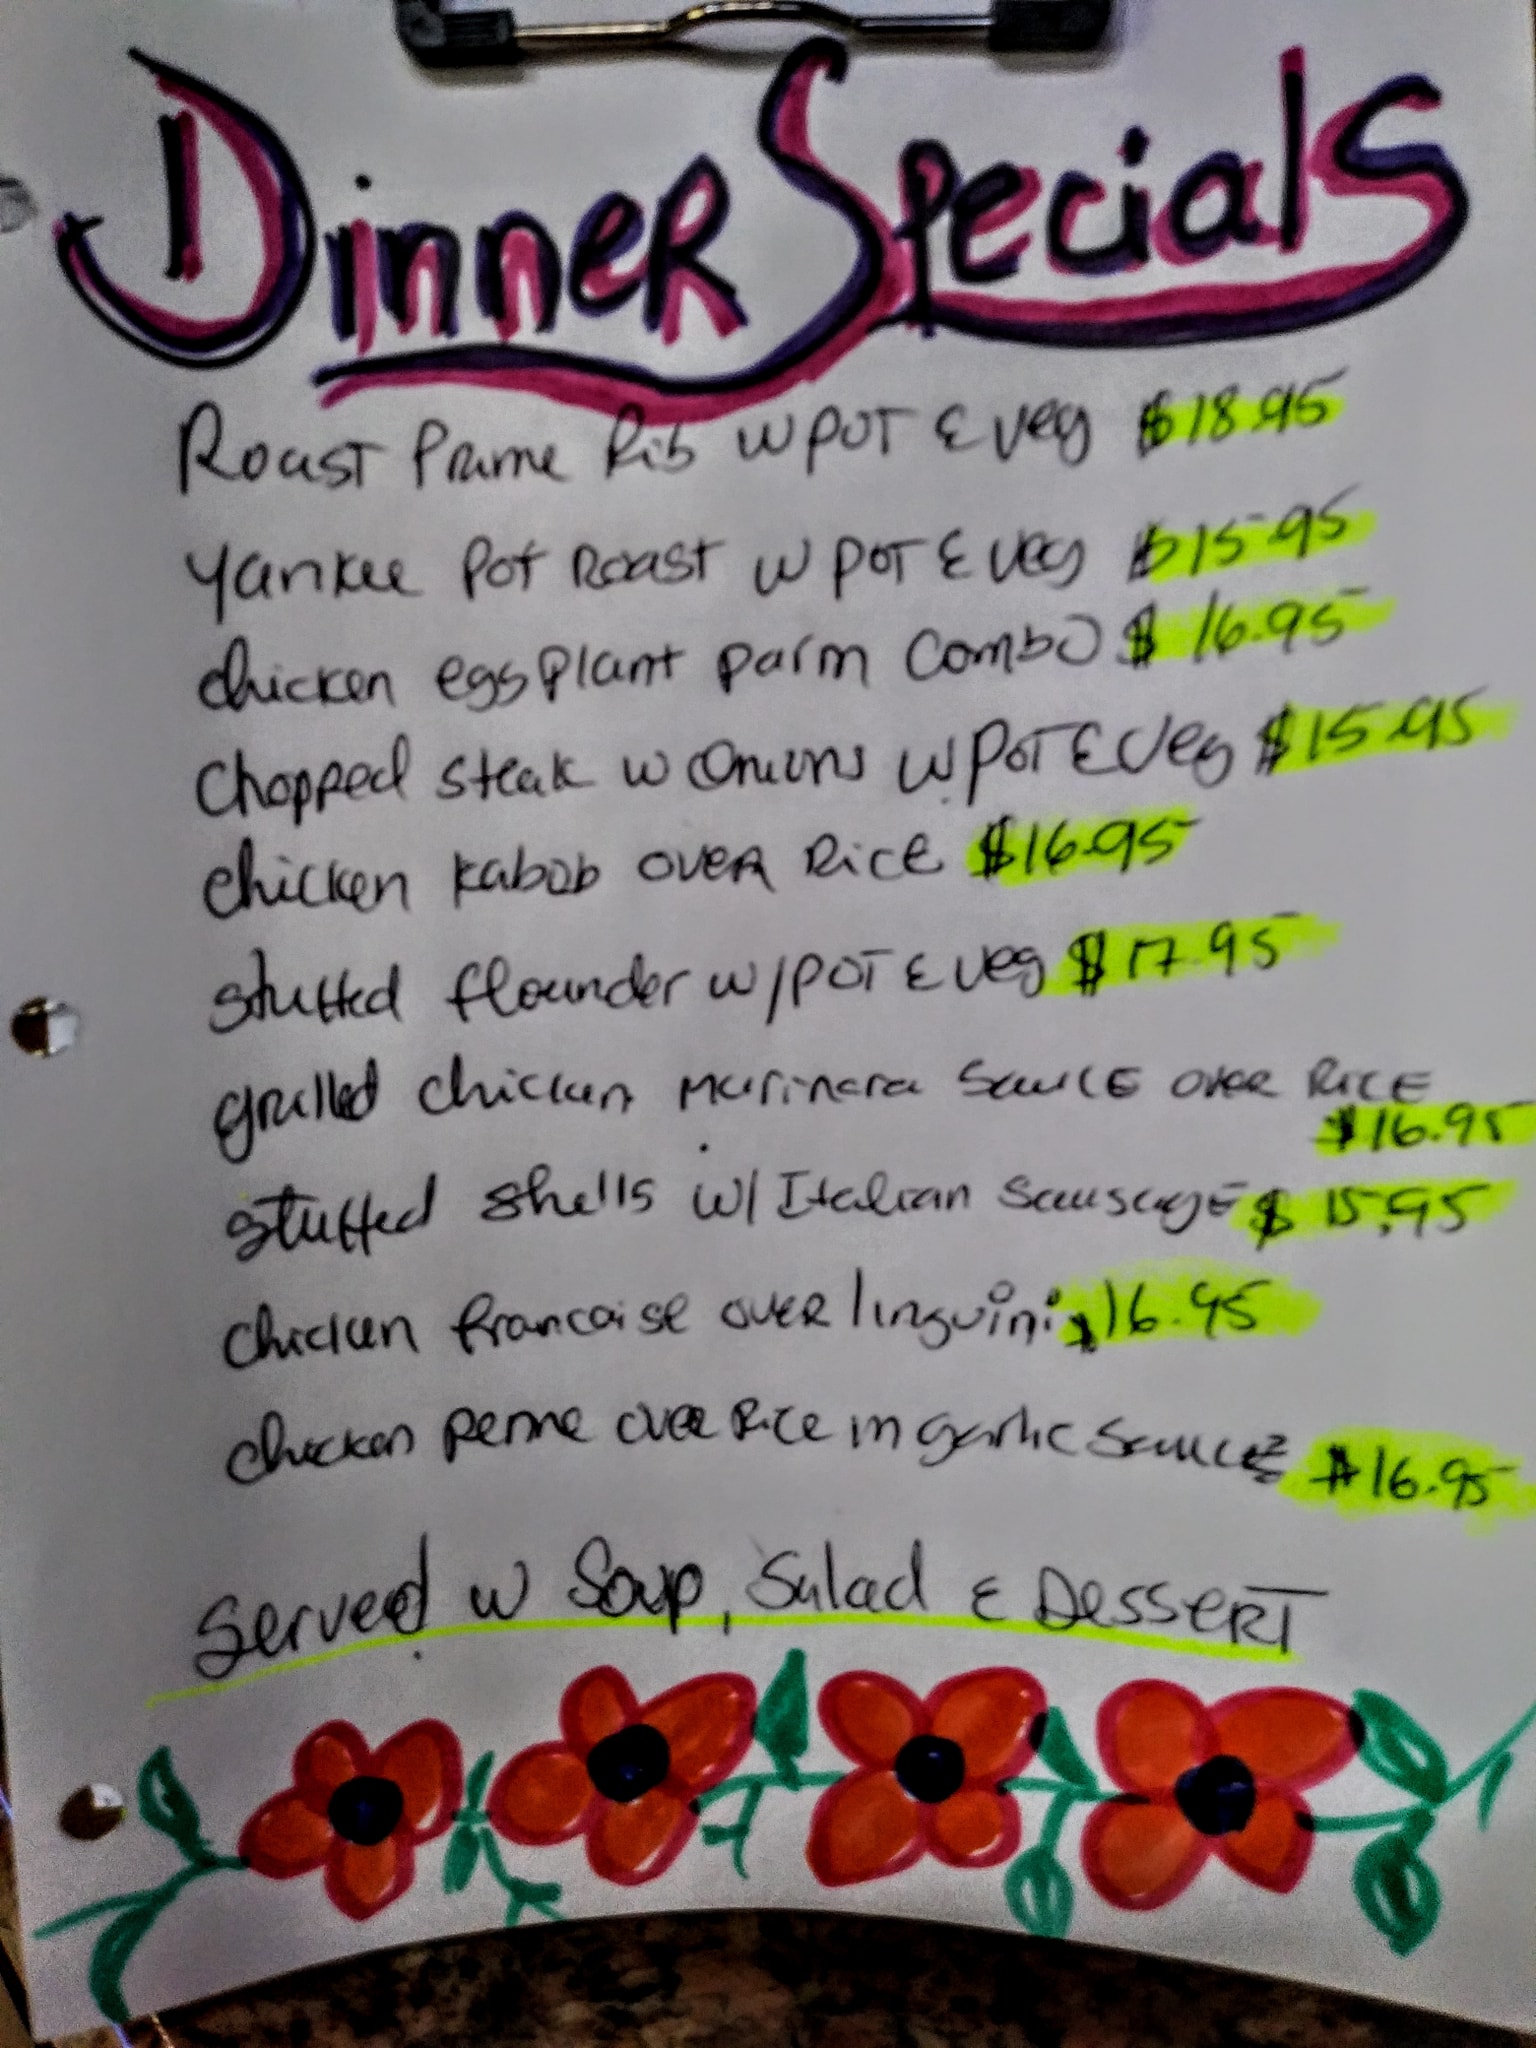 Dinner Specials
Roast Prime Rib w POT & veg $18.95
Yankee Pot Roast w POT & veg $15.95
chicken eggplant parm Combo $16.95
Chopped steak w Onions w POT & Veg $15.95
chicken kabob over Rice $16.95
stuffed flounder w/ POT & veg $17.95
grilled chicken marinara sauce over Rice
$16.95
stuffed shells w/ Italian sausage $15.95
chicken francaise over linguini $16.95
chicken penne over Rice in garlic sauce $16.95
Served w Soup, Salad & Dessert